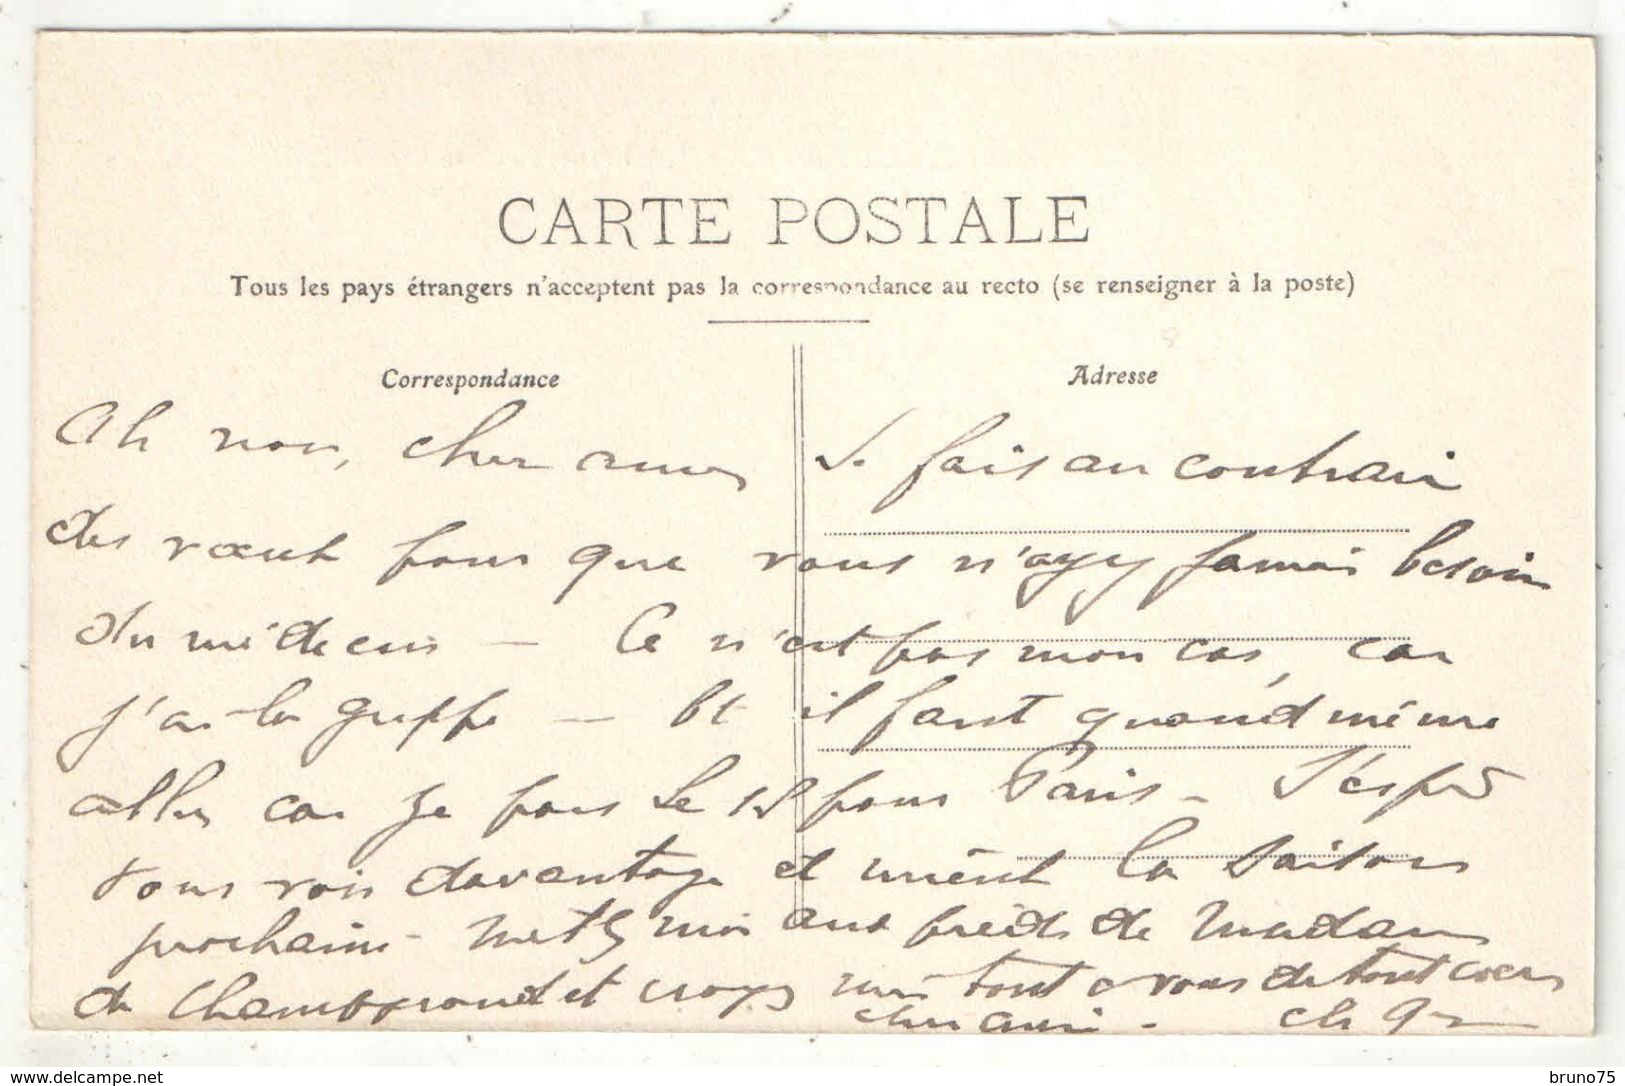 CARTE POSTALE
Tous les pays étrangers n'acceptent pas la correspondance au recto (se renseigner à la poste)
Correspondance
Adresse
Ah non, cher ami, Je fais au contraire
des vœux pour que vous n'ayez jamais besoin
du médecin – Ce n'est pas mon cas, car
j'ai la grippe – Et il faut quand même
aller car je pars le 12 pour Paris – J'espère
vous voir davantage et mieux la saison
prochaine – Mettez moi aux pieds de Madame
de Chambgrand et croyez moi tout à vous de tout cœur
cher ami – Ch
www.delcampe.net
bruno75